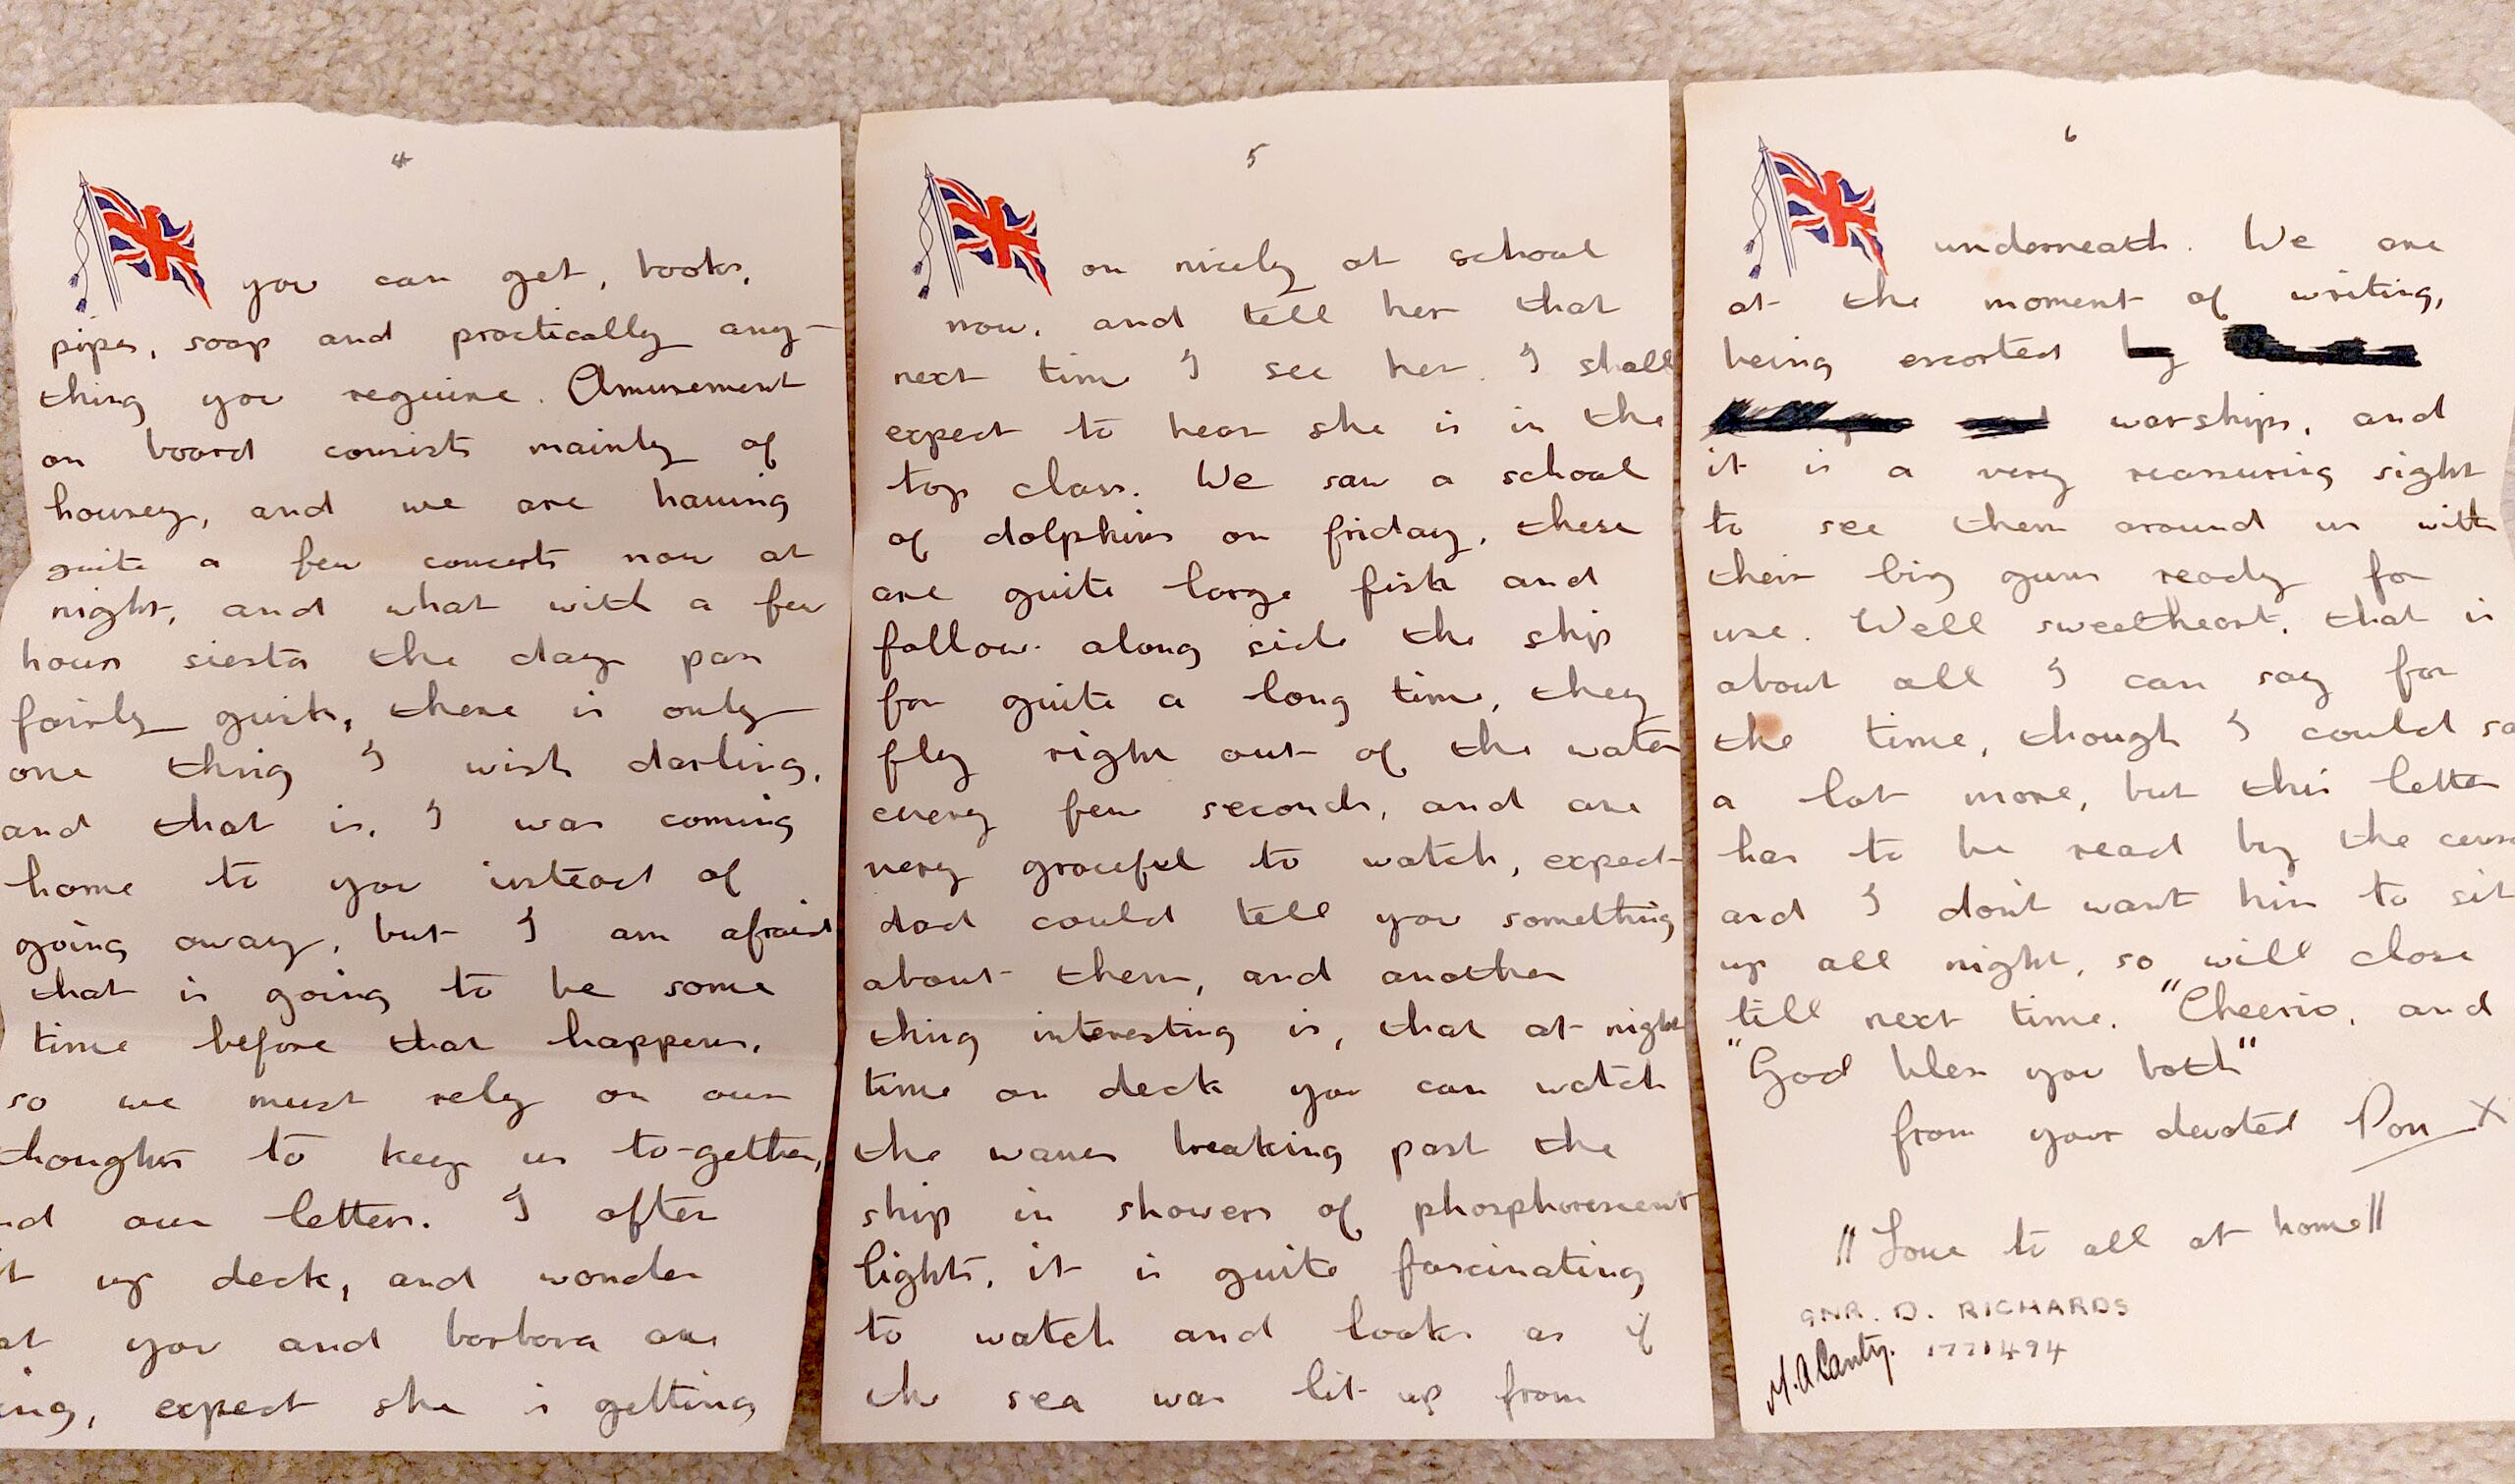 4
you can get, books,
pipes, soap and practically any-
thing you require. Amusement
on board consists mainly of
housey, and we are having
quite a few concerts now at
night, and what with a few
hours siesta the days pass
fairly quick, there is only
one thing I wish darling,
and that is, I was coming
home to you instead of
going away, but I am afraid
that is going to be some
time before that happens,
so we must rely on our
thoughts to keep us to-gether,
nd our letters. I often
t up deck, and wonder
at you and barbara are
ing, expect she is getting
5
on nicely at school
now, and tell her that
next time I see her I shall
expect to hear she is in the
top class. We saw a school
of dolphins on friday, these
are quite large fish and
follow along side the ship
for quite a long time, they
fly right out of the water
every few seconds, and are
very graceful to watch, expect
dad could tell you something
about them, and another
thing interesting is, that at night
time on deck you can watch
the waves breaking past the
ship in showers of phosphorescent
lights, it is quite fascinating
to watch and looks as if
the sea was lit up from
6
underneath. We are
at the moment of writing,
being escorted by
warships, and
it is a very reassuring sight
to see them around us with
their big guns ready for
use. Well sweetheart, that is
about all I can say for
the time, though I could sa
a lot more, but this letter
has to be read by the cens
and I don't want him to sit
up all night, so will close
till next time. "Cheerio, and
"God bless you both"
from your devoted Don X
"Love to all at home"
GNR. D. RICHARDS
1771494
M.A.Canty.